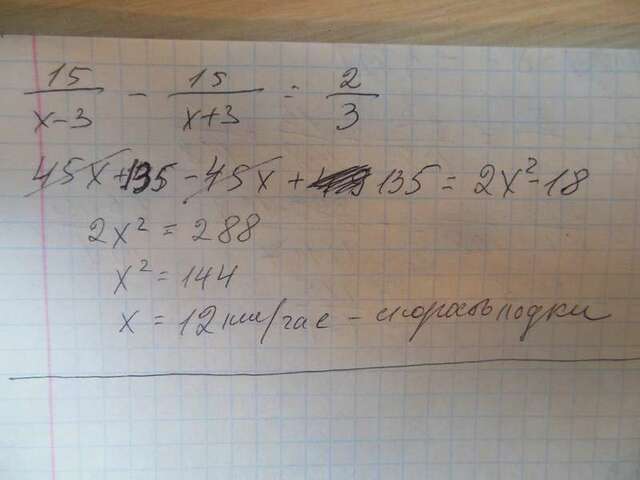 15/(x-3) - 15/(x+3) = 2/3
45x + 135 - 45x + 135 = 2x² - 18
2x² = 288
x² = 144
x = 12 км/час - скорость лодки